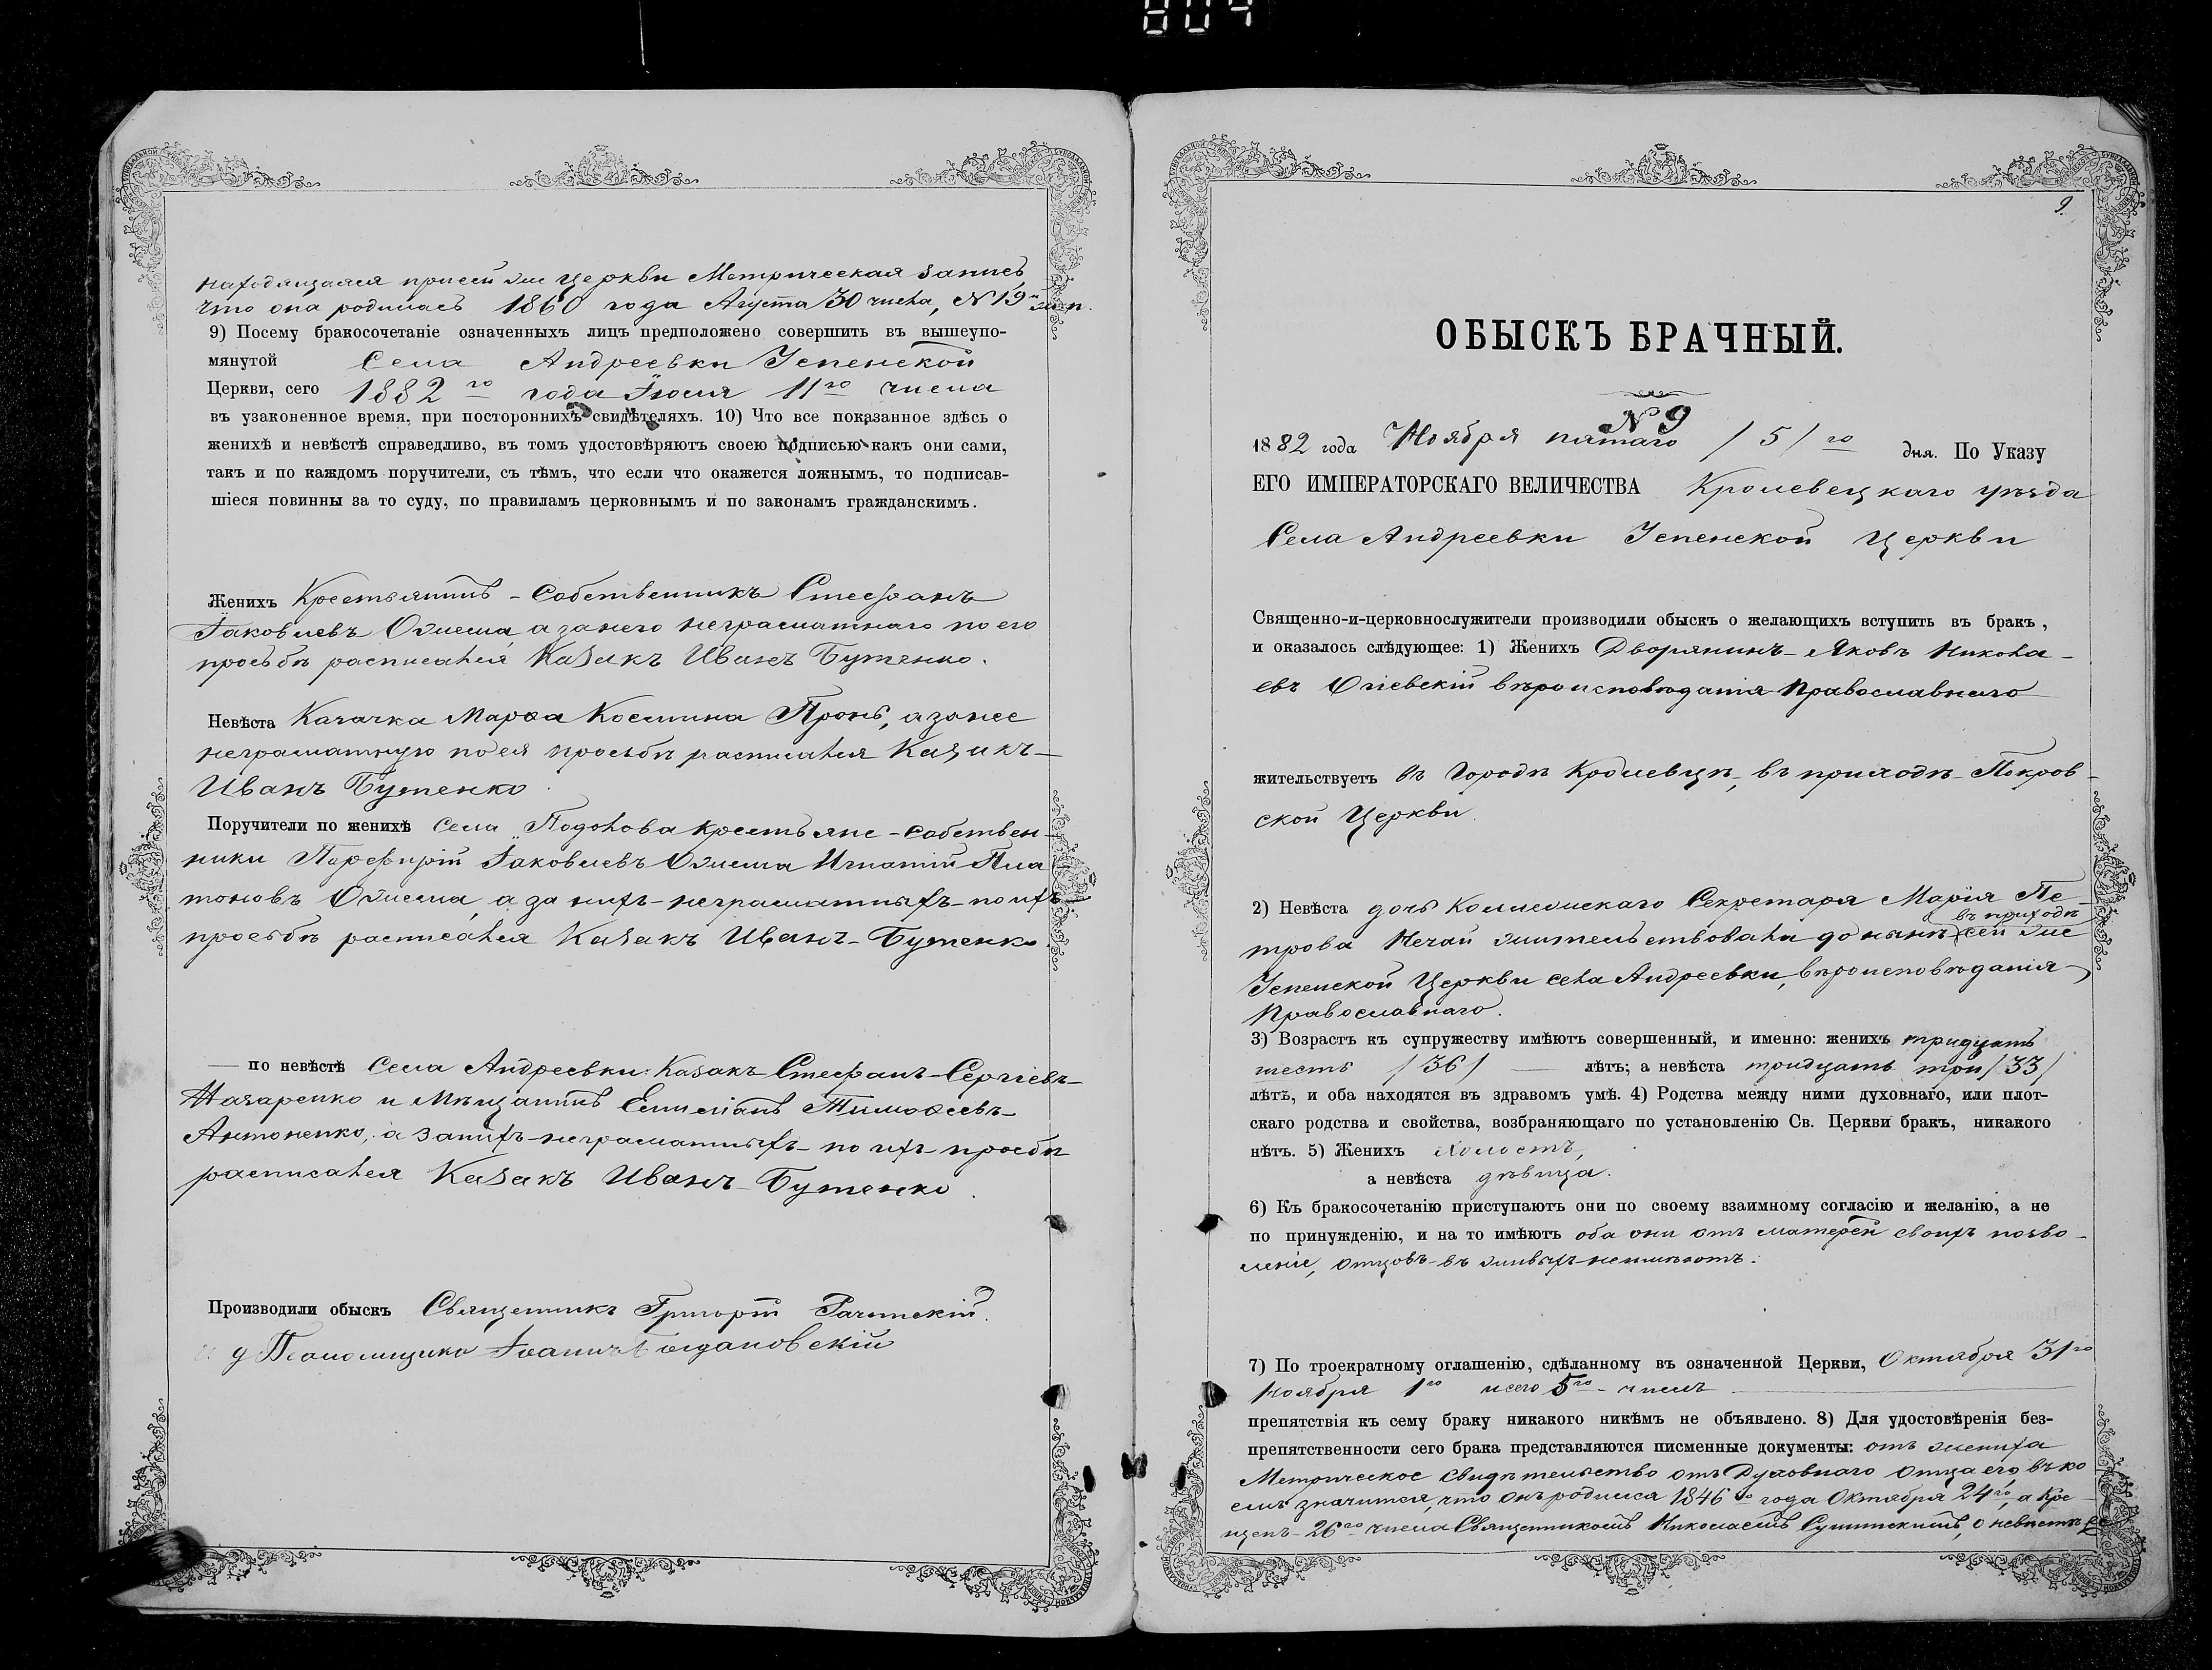 находящаяся при сей же церкви Метрическая запись,
что она родилась 1860 года Августа 30 числа, N 19 жен. п.
9) Посему бракосочетаніе означенныхъ лицъ предположено совершить въ вышеупо-
мянутой Села Андреевки Успенской
Церкви, сего 1882 го года Іюля 11го числа
въ узаконенное время, при постороннихъ свидѣтеляхъ. 10) Что все показанное здѣсь о
женихѣ и невѣстѣ справедливо, въ томъ удостовѣряютъ своею подписью какъ они сами,
такъ и по каждомъ поручители, съ тѣмъ, что если что окажется ложнымъ, то подписав-
шіеся повинны за то суду, по правиламъ церковнымъ и по законамъ гражданскимъ.
Женихъ Крестьянинъ-собственникъ Стефанъ
Іаковлевъ а за него неграматнаго по его
просьбѣ расписался Казакъ Иванъ Бутенко.
Невѣста Казачка Марѳа Космина Пронь, а за нее
неграматную по ея просьбѣ расписался Казакъ
Иванъ Бутенко.
Поручители по женихѣ села Подолова крестьяне-собствен-
ники Порфирій Іаковлевъ Игнатій Пла
тоновъ а за нихъ неграматныхъ по ихъ
просьбѣ расписался Казакъ Иванъ Бутенко
— по невѣстѣ Села Андреевки Казакъ Стефанъ Сергіевъ
Назаренко и Мѣщанинъ Емиліанъ Тимоѳеевъ
Антоненко, а за нихъ неграматныхъ по ихъ просьбѣ
расписался Казакъ Иванъ Бутенко.
Производили обыскъ Священникъ Григорій Рачинскій.
Іоаннъ Богдановскій
9.
ОБЫСКЪ БРАЧНЫЙ.
N 9
1882 года Ноября пятаго /5/ го дня. По Указу
ЕГО ИМПЕРАТОРСКАГО ВЕЛИЧЕСТВА Кролевецкаго уѣзда
Села Андреевки Успенской Церкви
Священно-и-церковнослужители производили обыскъ о желающихъ вступить въ бракъ,
и оказалось слѣдующее: 1) Женихъ Дворянинъ Яковъ Никола-
евъ Огіевскій вѣроисповѣданія Православнаго
жительствуетъ въ Городѣ Кролевцѣ, въ приходѣ Покров-
ской Церкви.
2) Невѣста дочь Коллежскаго Секретаря Марія Пе-
въ приходѣ
трова Нечай жительствовала до нынѣ сей же
Успенской Церкви села Андреевки, вѣроисповѣданія
Православнаго.
3) Возрастъ къ супружеству имѣютъ совершенный, и именно: женихъ тридцать
шесть /36/ лѣтъ; а невѣста тридцать три /33/
лѣтъ, и оба находятся въ здравомъ умѣ. 4) Родства между ними духовнаго, или плот-
скаго родства и свойства, возбраняющаго по установленію Св. Церкви бракъ, никакого
нѣтъ. 5) Женихъ Холостъ,
а невѣста дѣвица.
6) Къ бракосочетанію приступаютъ они по своему взаимному согласію и желанію, а не
по принужденію, и на то имѣютъ оба они отъ матерей своихъ позво-
леніе, отцовъ въ живыхъ неимѣютъ.
7) По троекратному оглашенію, сдѣланному въ означенной Церкви, Октября 31го
Ноября 1го и сего 5го числъ
препятствія къ сему браку никакого никѣмъ не объявлено. 8) Для удостовѣренія без-
препятственности сего брака представляются писменные документы: отъ жениха
Метрическое свидѣтельство отъ Духовнаго Отца его, въ ко
емъ значится, что онъ родился 1846 го года Октября 24го, а Кре-
щенъ 26го числа Священникомъ Николаемъ о невѣстѣ